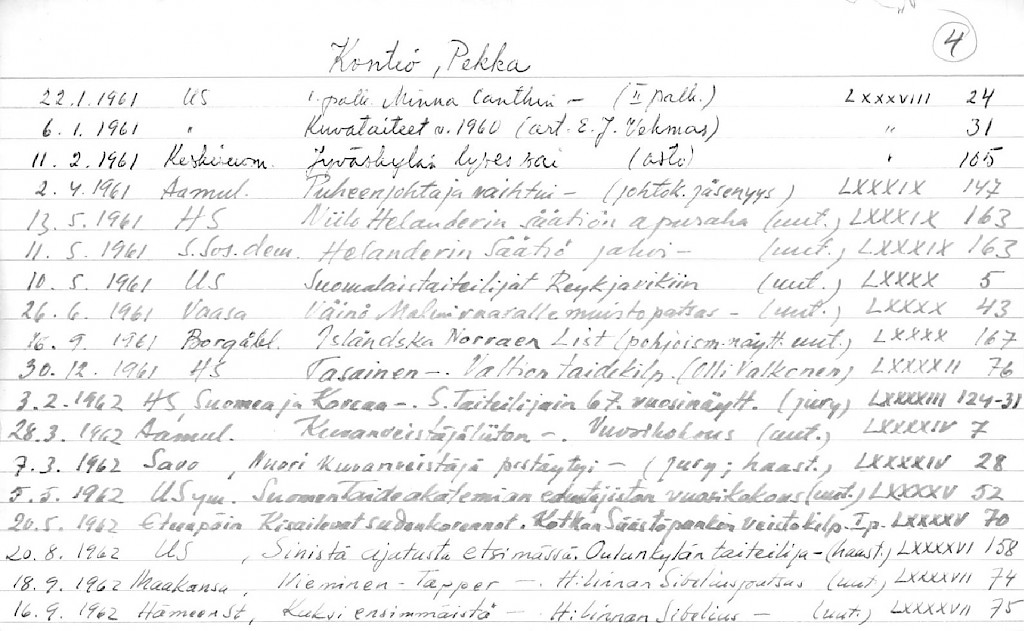 4
Kontio, Pekka
22.1.1961 US 1. palk. Minna Canthin – (II palk.) LXXXVIII 24
6.1.1961 " Kuvataiteet v. 1960 (art. E.J. Vehmas) " 31
11.2.1961 Keskisuom. Jyväskylän lypsessai (asto) " 105
2.4.1961 Aamul. Puheenjohtaja vaihtui – (johtok. jäsenyys) LXXXIX 147
13.5.1961 HS Niilo Helanderin säätiön apuraha (uut.) LXXXIX 163
11.5.1961 S.Sos.dem. Helanderin Säätiö jakoi – (uut.) LXXXIX 163
10.5.1961 US Suomalaistaiteilijat Reykjavikiin (uut.) LXXXX 5
26.6.1961 Vaasa Väinö Malmivaaralle muistopatsas – (uut.) LXXXX 43
16.9.1961 Borgåbl. Isländska Norraen List (pohjoism. näytt. uut.) LXXXX 167
30.12.1961 HS Tasainen –. Valtion taidekilp. (Olli Valkonen) LXXXXII 76
3.2.1962 HS, Suomea ja Koreaa –. S. Taiteilijain 67. vuosinäytt. (jury) LXXXXIII 124-31
28.3.1962 Aamul. Kuvanveistäjäliiton –. Vuosikokous (uut.) LXXXXIV 7
7.3.1962 Savo, Nuori kuvanveistäjä pistäytyi – (jury; haast.) LXXXXIV 28
5.5.1962 US ym. Suomen Taideakatemian edustajiston vuosikokous (uut.) LXXXXV 52
20.5.1962 Eteenpäin Kisailevat sudenkorennot. Kotkan Säästöpankin veistokilp. I p. LXXXXV 70
20.8.1962 US, Sinistä ajatusta etsimässä. Oulunkylän taiteilija – (haast.) LXXXXVI 158
18.9.1962 Maakansa, Nieminen-Tapper –. H:linnan Sibeliusjoutsus (uut.) LXXXXVII 74
16.9.1962 HämeenSt, Kaksi ensimmäistä –. H:linnan Sibelius – (uut.) LXXXXVII 75